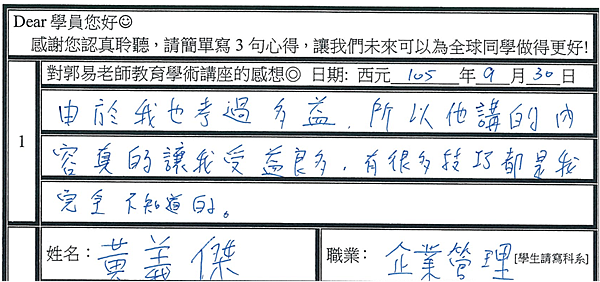 Dear 學員您好☺
感謝您認真聆聽，請簡單寫 3 句心得，讓我們未來可以為全球同學做得更好!
對郭易老師教育學術講座的感想◎ 日期: 西元 105 年 9 月 30 日
1
由於我也考過多益，所以他講的內
容真的讓我受益良多，有很多技巧都是我
完全不知道的。
姓名：黃義傑 職業：企業管理 [學生請寫科系]